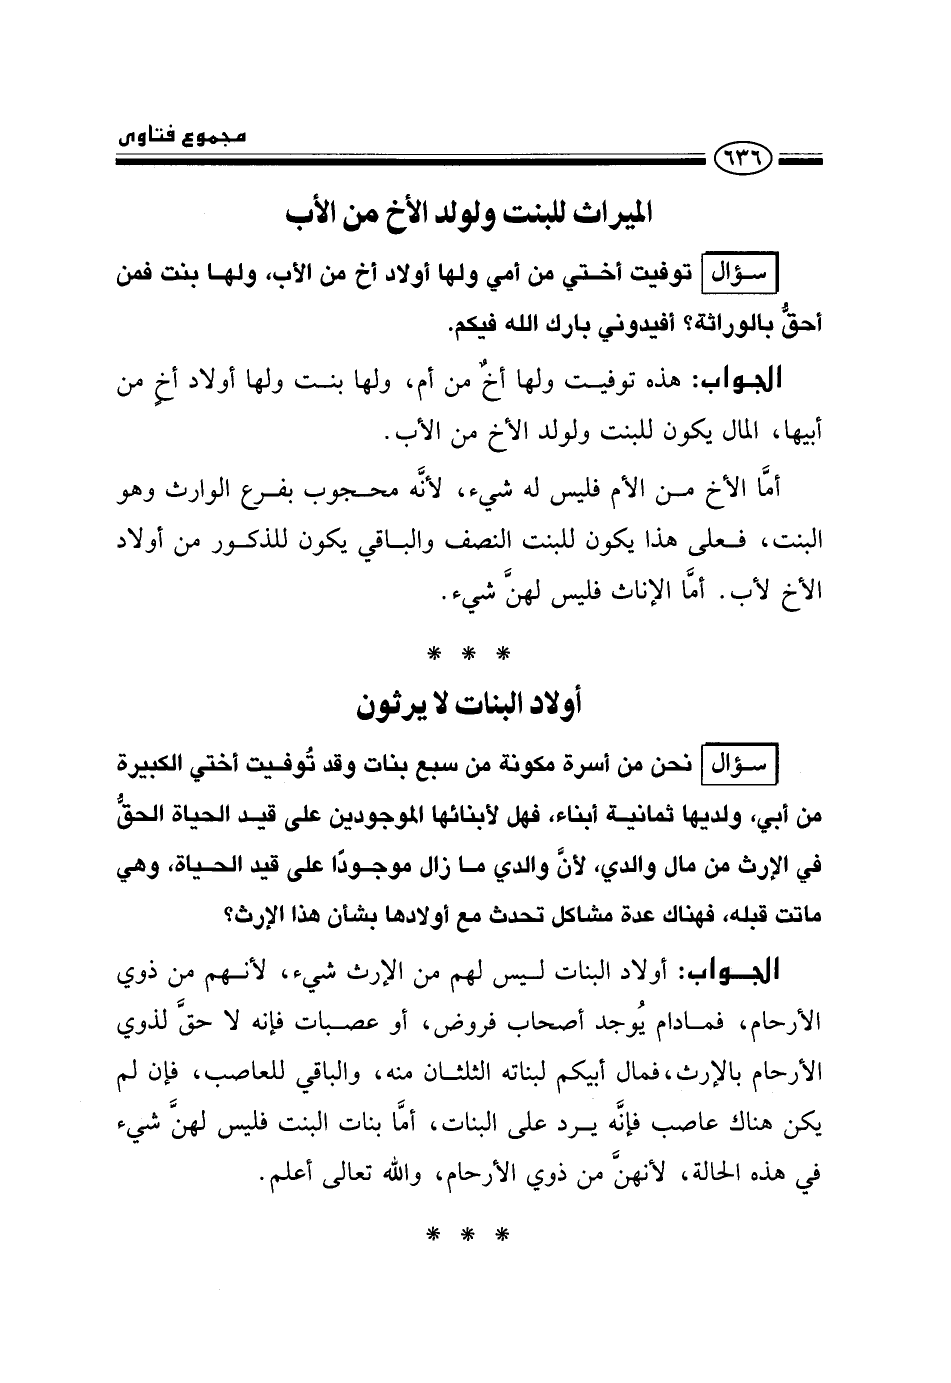 مجموع فتاوى
٦٣٦
الميراث للبنت ولولد الأخ من الأب
سؤال توفيت أختي من أمي ولها أولاد أخ من الأب، ولها بنت فمن
أحقُّ بالوراثة؟ أفيدوني بارك الله فيكم.
الجواب: هذه توفيت ولها أخٌ من أم، ولها بنت ولها أولاد أخٍ من
أبيها، المال يكون للبنت ولولد الأخ من الأب.
أمَّا الأخ من الأم فليس له شيء، لأنَّه محجوب بفرع الوارث وهو
البنت، فعلى هذا يكون للبنت النصف والباقي يكون للذكور من أولاد
الأخ لأب. أمَّا الإناث فليس لهنَّ شيء.
* * *
أولاد البنات لا يرثون
سؤال نحن من أسرة مكونة من سبع بنات وقد تُوفيت أختي الكبيرة
من أبي، ولديها ثمانية أبناء، فهل لأبنائها الموجودين على قيد الحياة الحقُّ
في الإرث من مال والدي، لأنَّ والدي ما زال موجودًا على قيد الحياة، وهي
ماتت قبله، فهناك عدة مشاكل تحدث مع أولادها بشأن هذا الإرث؟
الجواب: أولاد البنات ليس لهم من الإرث شيء، لأنهم من ذوي
الأرحام، فمادام يُوجد أصحاب فروض، أو عصبات فإنه لا حقَّ لذوي
الأرحام بالإرث،فمال أبيكم لبناته الثلثان منه، والباقي للعاصب، فإن لم
يكن هناك عاصب فإنَّه يرد على البنات، أمَّا بنات البنت فليس لهنَّ شيء
في هذه الحالة، لأنهنَّ من ذوي الأرحام، والله تعالى أعلم.
* * *